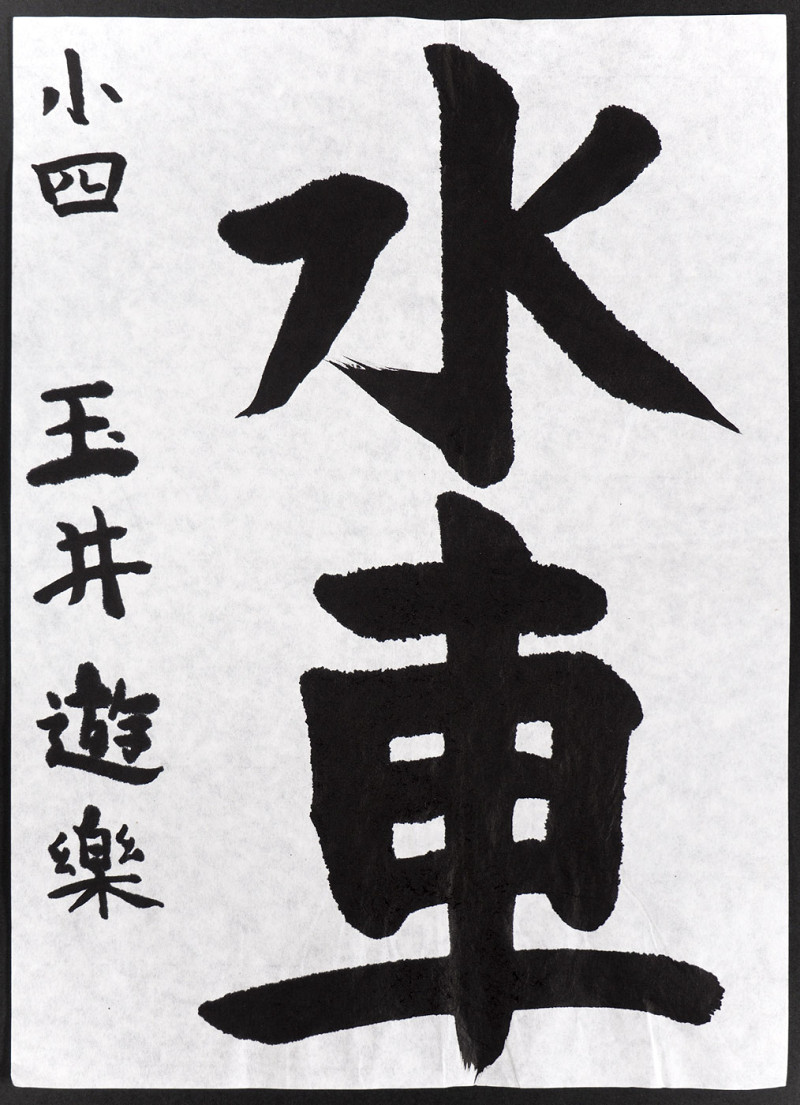 水車
小四 玉井遊樂